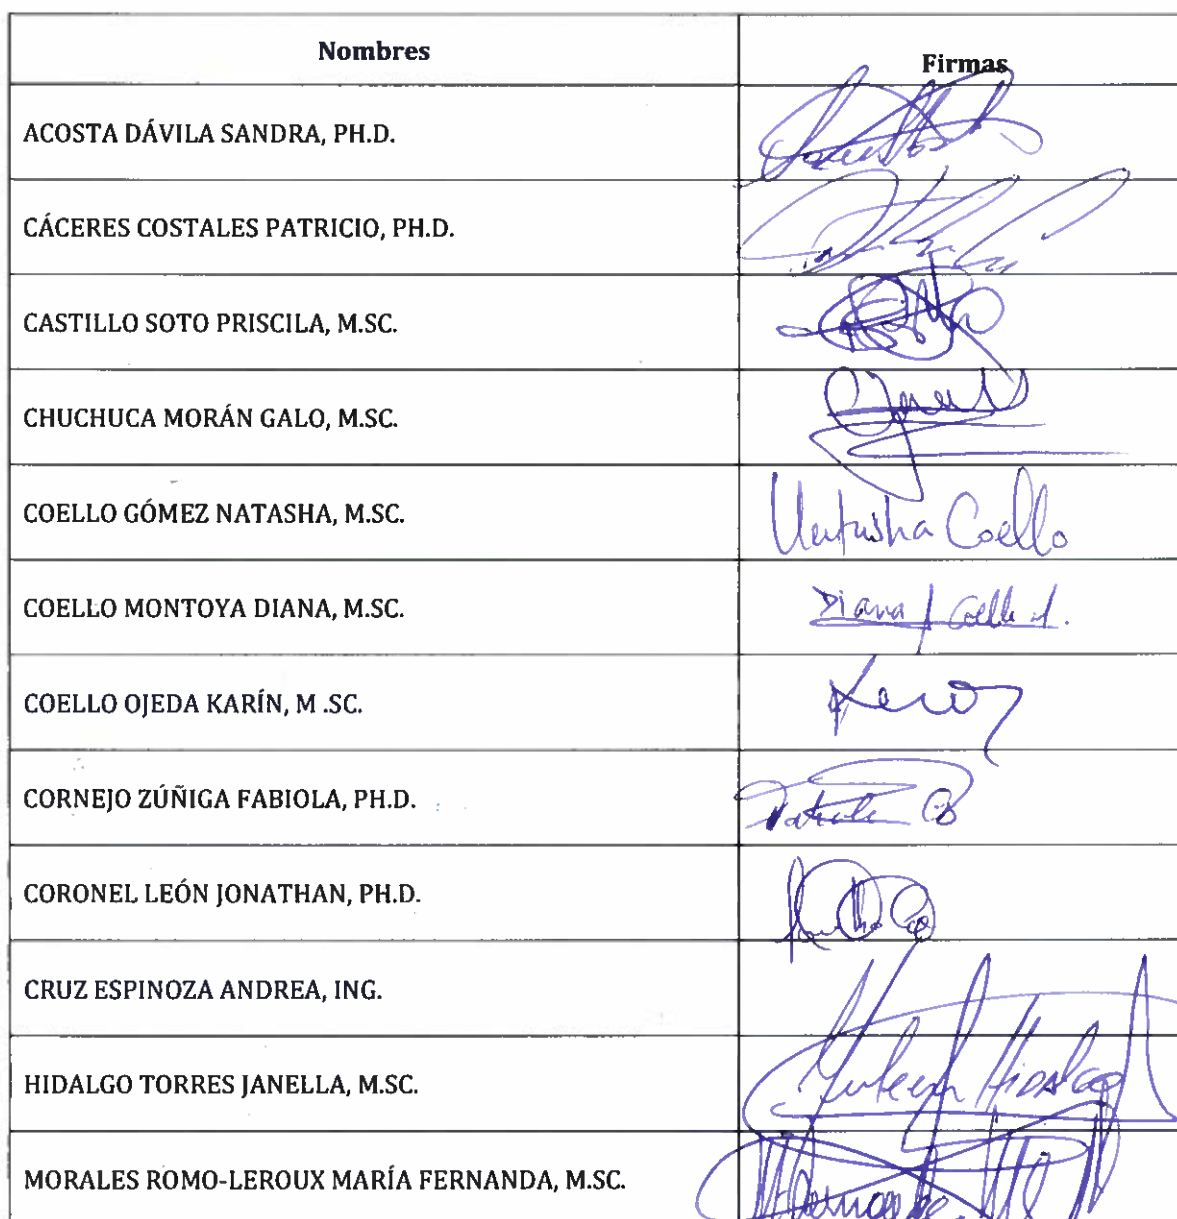 Nombres Firmas
ACOSTA DÁVILA SANDRA, PH.D.
CÁCERES COSTALES PATRICIO, PH.D.
CASTILLO SOTO PRISCILA, M.SC.
CHUCHUCA MORÁN GALO, M.SC.
COELLO GÓMEZ NATASHA, M.SC. Natasha Coello
COELLO MONTOYA DIANA, M.SC. Diana Coello M.
COELLO OJEDA KARÍN, M .SC.
CORNEJO ZÚÑIGA FABIOLA, PH.D.
CORONEL LEÓN JONATHAN, PH.D.
CRUZ ESPINOZA ANDREA, ING.
HIDALGO TORRES JANELLA, M.SC. Hidalgo
MORALES ROMO-LEROUX MARÍA FERNANDA, M.SC.